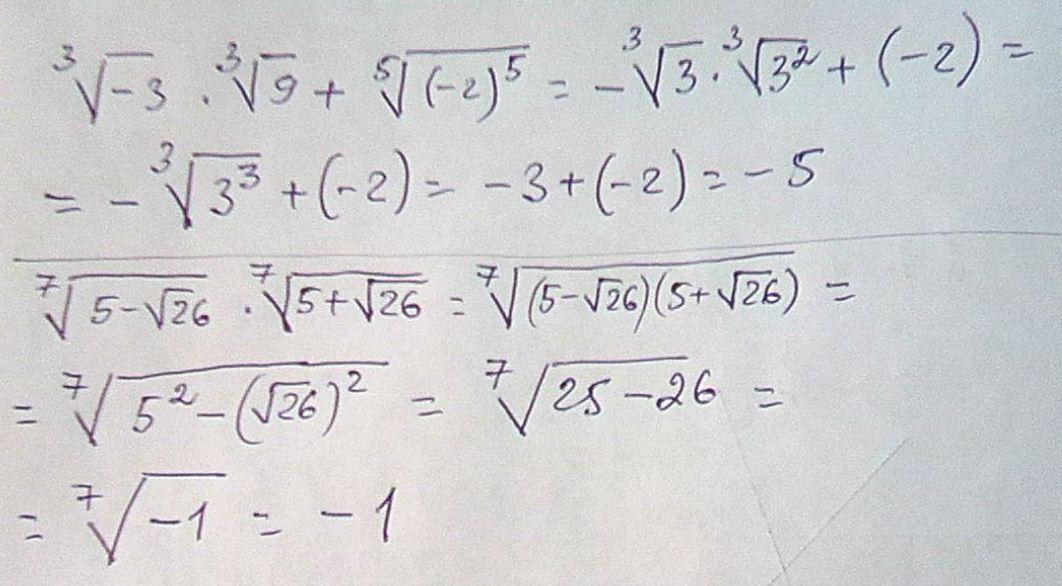 ∛-3 · ∛9 + ⁵√(-2)⁵ = -∛3 · ∛3² + (-2) =
= -∛3³ + (-2) = -3 + (-2) = -5
⁷√5-√26 · ⁷√5+√26 = ⁷√(5-√26)(5+√26) =
= ⁷√5²-(√26)² = ⁷√25-26 =
= ⁷√-1 = -1